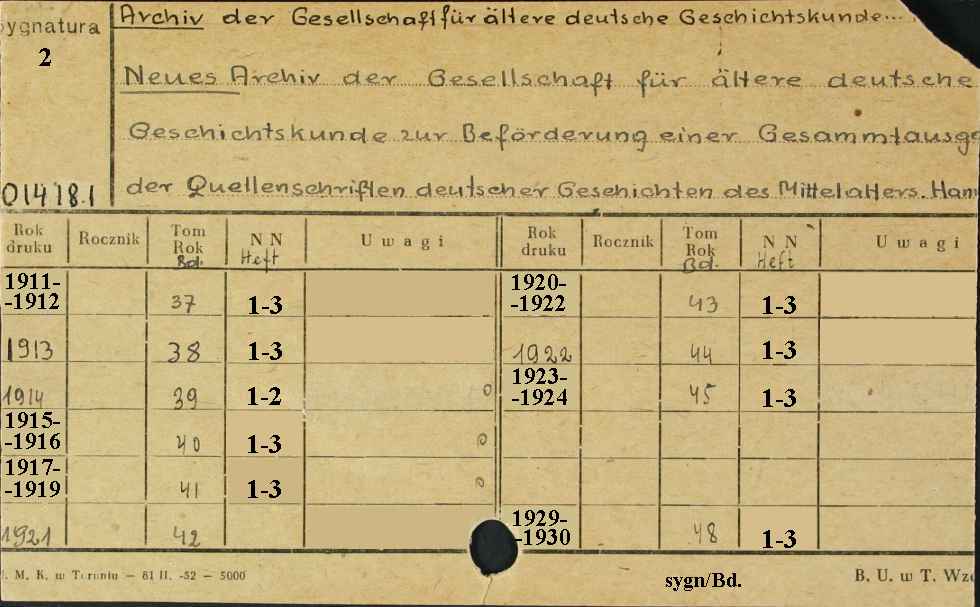 ygnatura
2
014181
Archiv der Gesellschaft für ältere deutsche Geschichtskunde...
Neues Archiv der Gesellschaft für ältere deutsche
Geschichtskunde zur Beförderung einer Gesammtausge
der Quellenschriften deutscher Geschichten des Mittelalters. Han
Rok druku Rocznik Tom Rok Bd. NN Heft Uwagi Rok druku Rocznik Tom Rok Bd. NN Heft Uwagi
1911-
-1912 37 1-3
1920-
-1922 43 1-3
1913 38 1-3
1922 44 1-3
1914 39 1-2
1923-
-1924 45 1-3
1915-
-1916 40 1-3
1917-
-1919 41 1-3
1921 42
1929-
-1930 48 1-3
M. K. w Toruniu — 81 II. -52 — 5000
sygn/Bd.
B. U. w T. Wzó